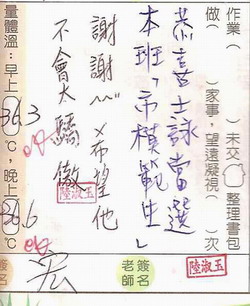 作業（　）未交　整理書包
做（　）家事，望遠凝視（　）次
恭喜士詠當選
本班「市模範生」
謝謝~希望他
不會太驕傲
量體溫：早上36.3°C，晚上36.6°C
老師簽名
簽名
玉淑陸
玉淑陸